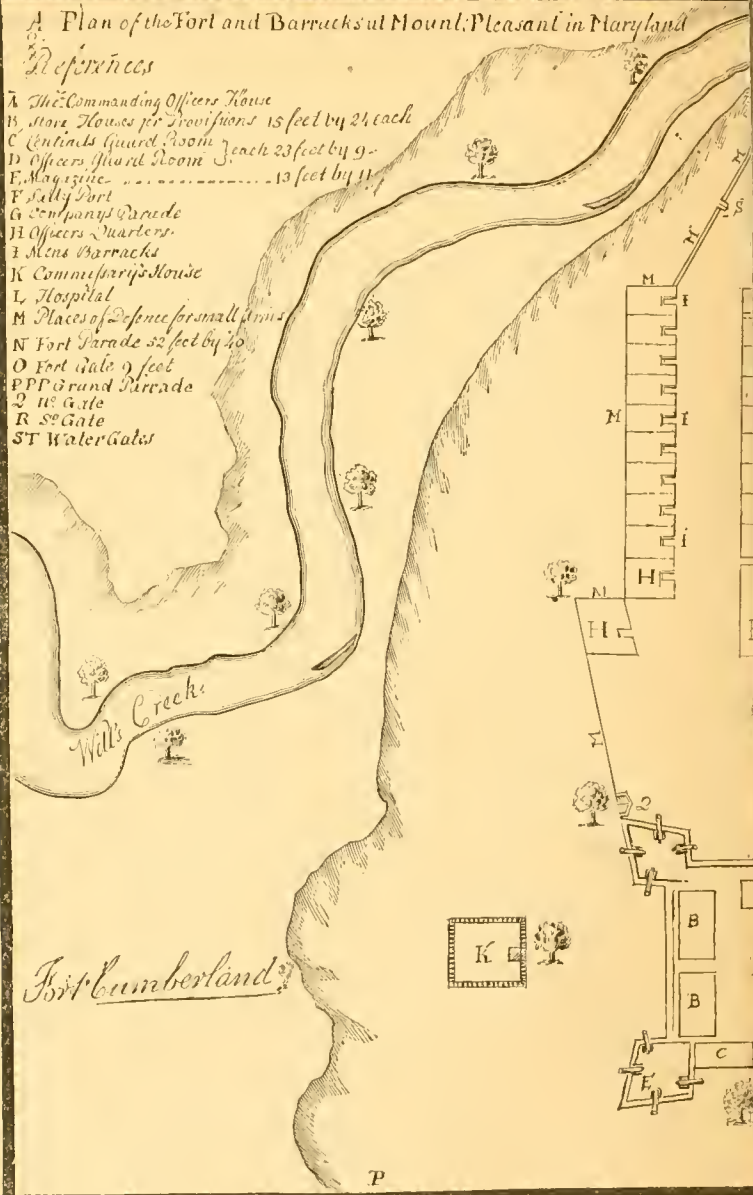 A Plan of the Fort and Barracks at Mount Pleasant in Maryland
References
A The Commanding Officers House
B Store Houses for Provisions 15 feet by 24 each
C Centinals Guard Room
D Officers Guard Room
each 23 feet by 9
E Magazine 13 feet by 11
F Sally Port
G Companys Parade
H Officers Quarters
I Mens Barracks
K Commissary's House
L Hospital
M Places of Defence for small Arms
N Fort Parade 52 feet by 40
O Fort Gate 9 feet
PPP Grund Parrade
2 No Gate
R So Gate
ST Water Gates
M
S
M
M
I
M
I
I
H
M
H
M
Will's Creek
2
K
B
B
Fort Cumberland
C
E
P